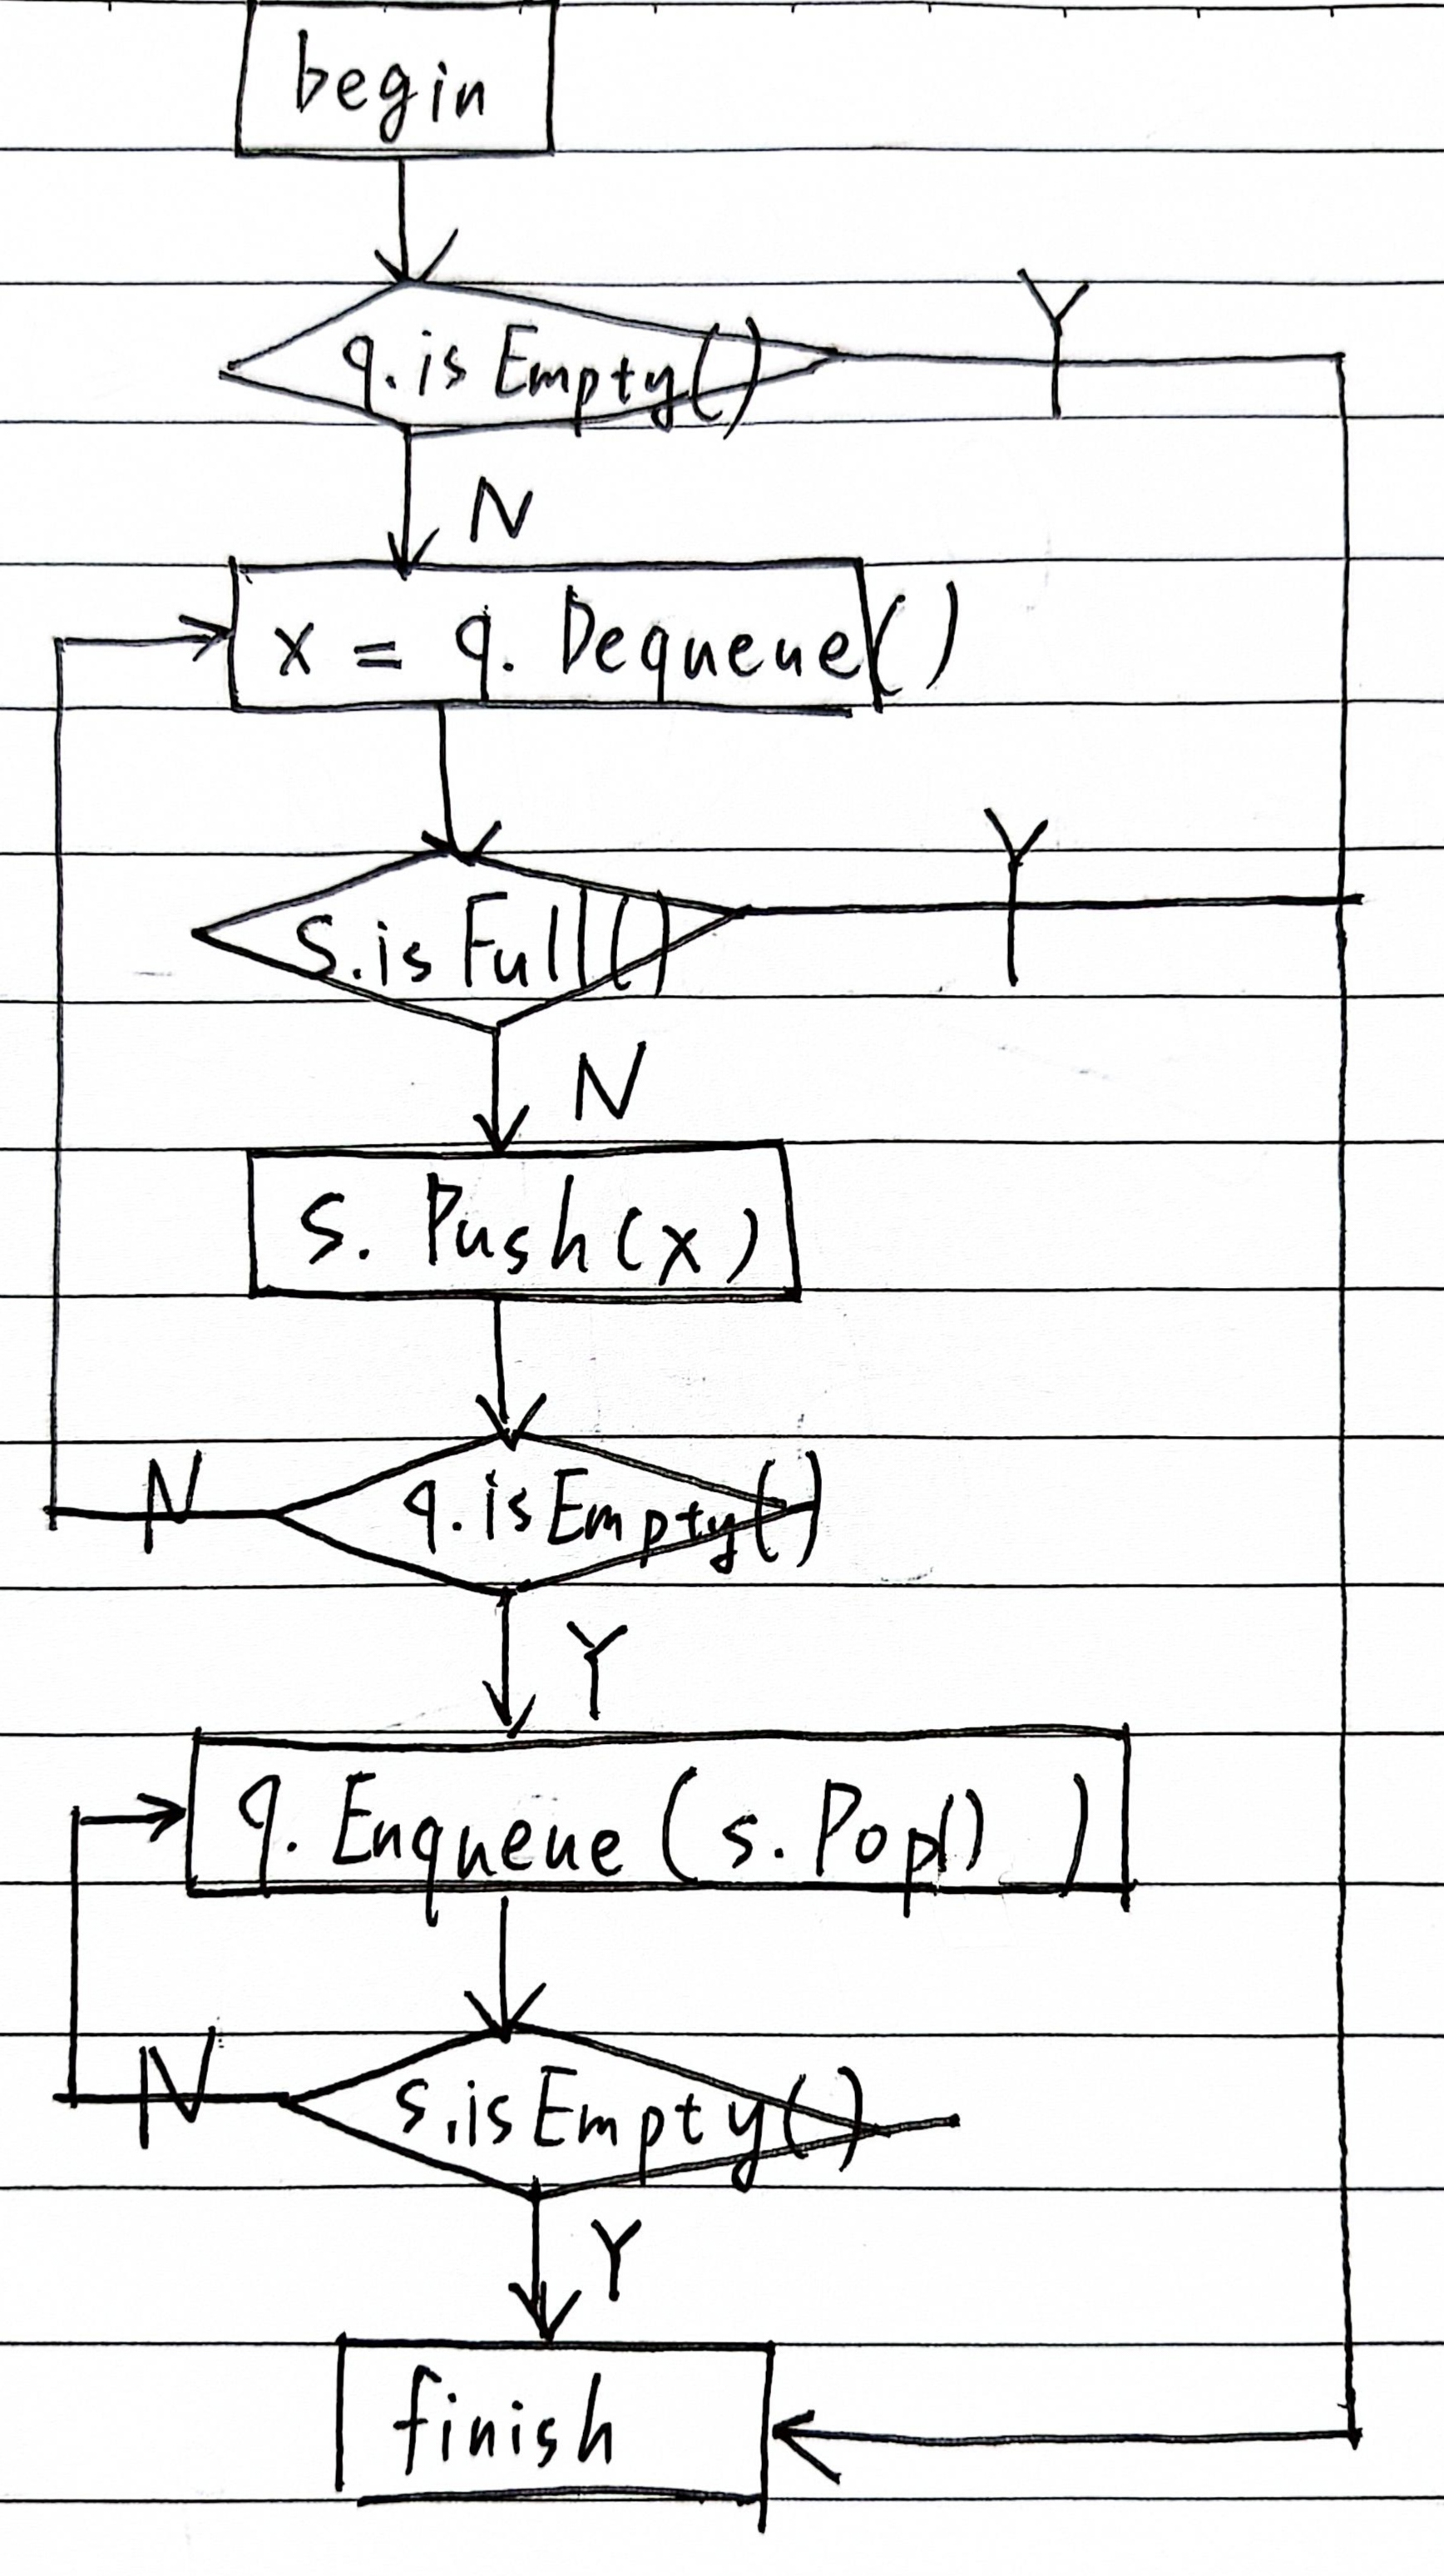 begin
q.isEmpty()
Y
N
x = q.Dequeue()
s.isFull()
Y
N
s.Push(x)
q.isEmpty()
N
Y
q.Enqueue(s.Pop())
s.isEmpty()
N
Y
finish